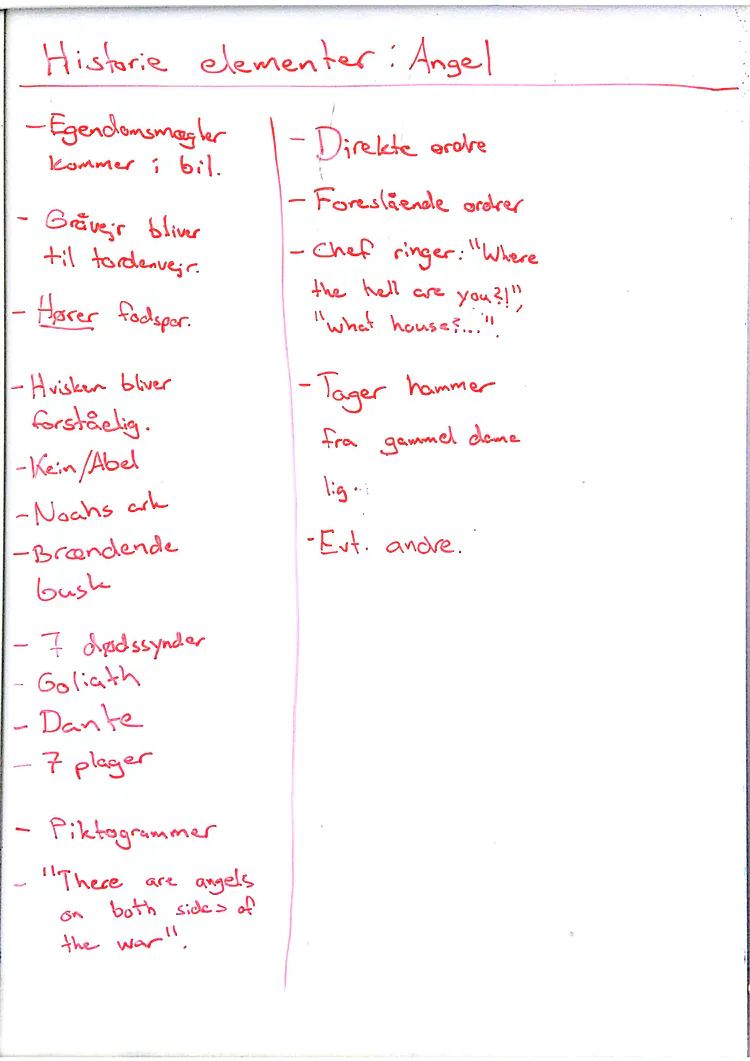 Historie elementer: Angel
- Egendomsmægler
kommer i bil.
- Gråvejr bliver
til tordenvejr.
- Hører fodspor.
- Hvisken bliver
forståelig.
- Kein/Abel
- Noahs ark
- Brændende
busk
- 7 dødssynder
- Goliath
- Dante
- 7 plager
- Piktogrammer
- "There are angels
on both sides of
the war".
- Direkte ordre
- Foreslående ordrer
- Chef ringer: "Where
the hell are you?!",
"What house?..."
- Tager hammer
fra gammel dame
lig.
- Evt. andre.